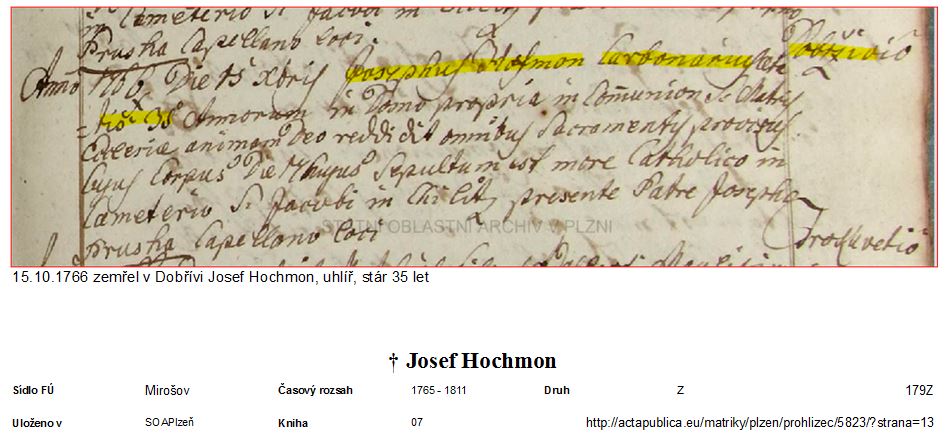 in Cameterio Si Jacobi in Chilitz
Pruska Capellano loci.
Anno 1766 Die 15 Xbris Josephus Hofmon Carbonarius Dobřzivio
Annorum in Domo propria in Coṁunion S. Matris
Ecclesiæ animam Deo reddidit omnibus Sacramentis provisus
Cujus Corpus Die hujus Sepultum est more Catholico in
Cameterio Si Jacobi in Chilitz presente Patre Josepho
Pruska Capellano loci
STÁTNÍ OBLASTNÍ ARCHIV V PLZNI
15.10.1766 zemřel v Dobřívi Josef Hochmon, uhlíř, stár 35 let
† Josef Hochmon
Sídlo FÚ Mirošov Časový rozsah 1765 - 1811 Druh Z 179Z
Uloženo v SOAPlzeň Kniha 07 http://actapublica.eu/matriky/plzen/prohlizec/5823/?strana=13